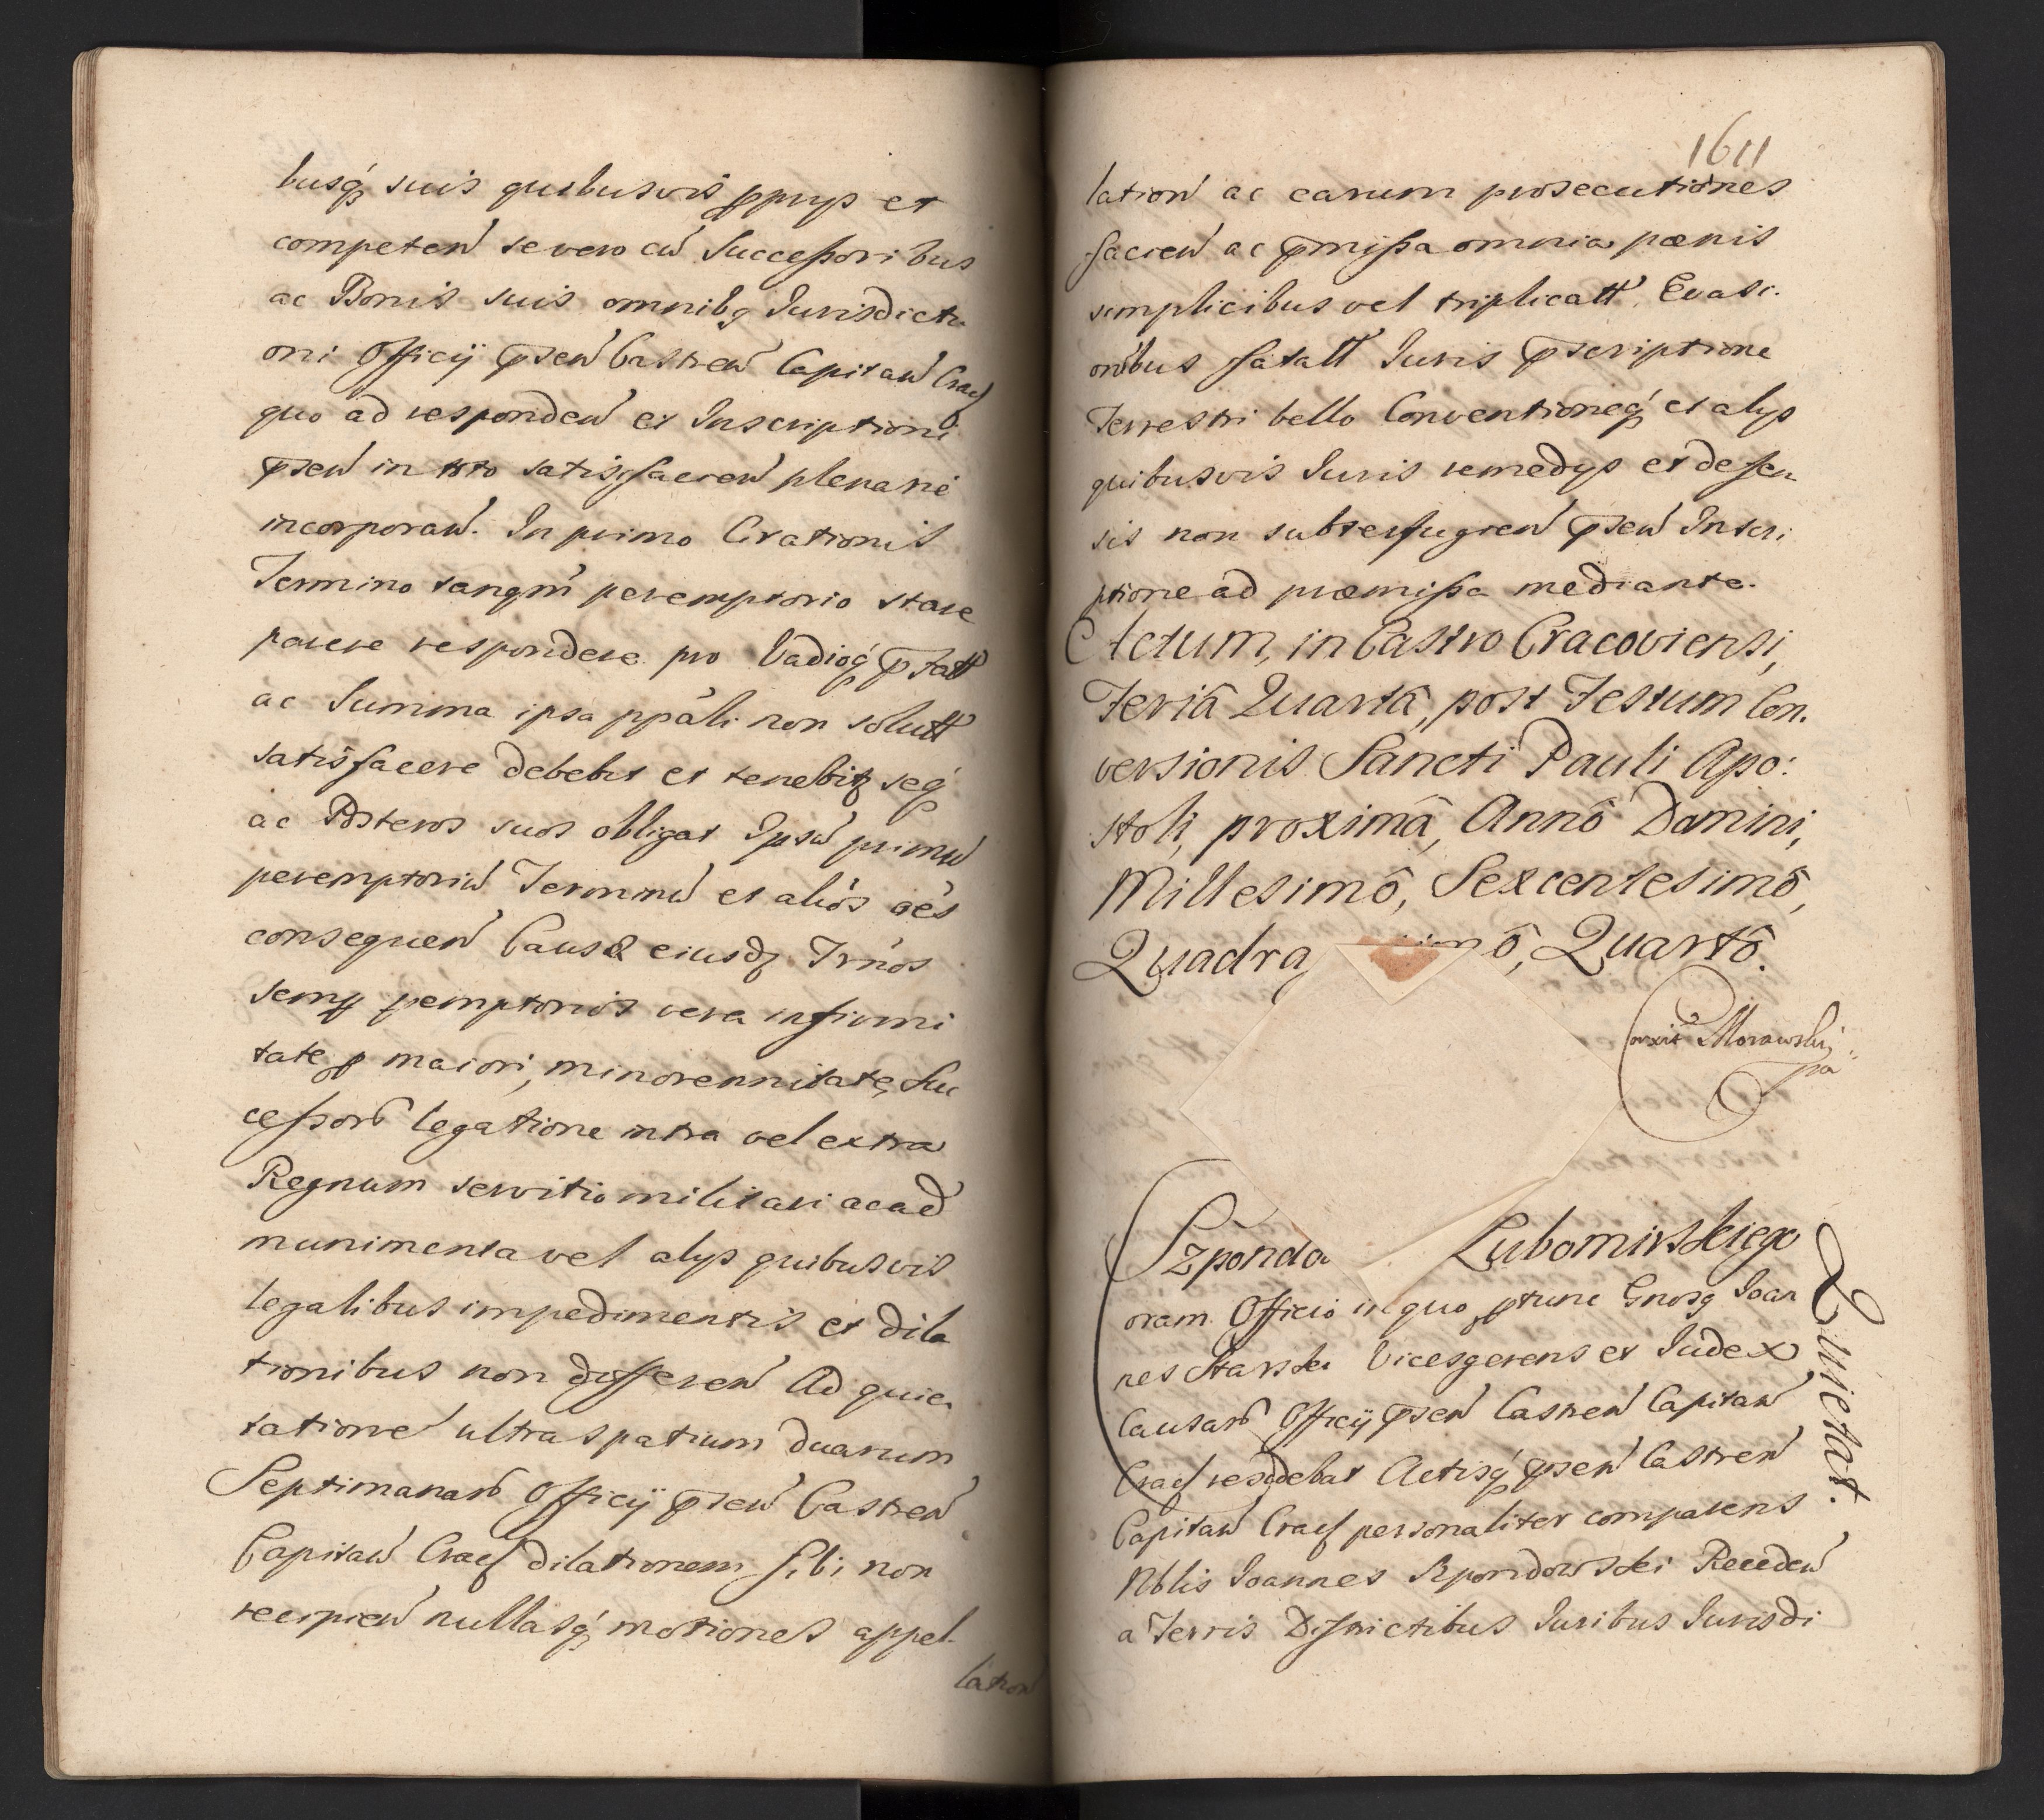 busq́ suis quibusvis pprys et
competen̄ se vero cū Successoribus
ac Bonis suis omnibꝗ Jurisdicti
oni Officij p̄sen̄ Castren̄ Capitan̄ Crac̄
quo ad responden̄ et Inscriptioni
p̄sen̄ in toto satisfacien̄ plenarie
incorporan̄. In primo Citationis
Termino tanqm̄ peremptorio stare
parere respondere pro Vadioq́ p̄tatt
ac Summa ipsa ppāli non solutt
satisfacere debebit et tenebitꝝ seq́
ac Posteros suos obligat Ipsū primū
peremptoriū Terminū et aliós oēs
consequen̄ Causæ eiusdꝫ Trn̄os
semꝑ ꝑemptoriis vera infirmi
tate ꝓ maiori, minorennitate, Suc
cessorꝭ legatione intra vel extra
Regnum servitio militari ac ad
munimenta vel alys quibusvis
legalibus impedimentis et dila
tionibus non differen̄ Ad quie
tationē ultra spatium duarum
Septimanarꝭ Officij p̄sen̄ Castren̄
Capitan̄ Crac̄ dilationem sibi non
recipien̄ nullasq́ motiones appel-
lation̄
1611
lation̄ ac earum prosecutiones
facien̄ ac p̄missa omnia pœnis
simplicibus vel triplicatt Evasi.
onibus fatatt Juris p̄scriptione
Terrestri bello Conventioneq́ et alys
quibusvis Juris remedys et defen
sis non subterfugien̄ p̄sen̄ Inscri
ptione ad præmissa mediante.
Actum, in Castro Cracoviensi,
Feriâ Quartâ, post Festum Con.
versionis Sancti Pauli Apo:
stoli, proximâ, Annô Domini,
Millesimô, Sexcentesimô,
Quadra ô, Quartô.
Morawski
Szponda Lubomirskiego
Quietat.
oram Officio in quo ptunc Gnosꝗ Joan
nes Starski Vicesgerens et Judex
Causarꝭ Officij p̄sen̄ Castren̄ Capitan̄
Crac̄ residebat Actisq́ p̄sen̄ Castren̄
Capitan̄ Crac̄ personaliter comparens
Nblis Joannes Spondowski Receden̄
a Terris Districtibus Juribus Jurisdi